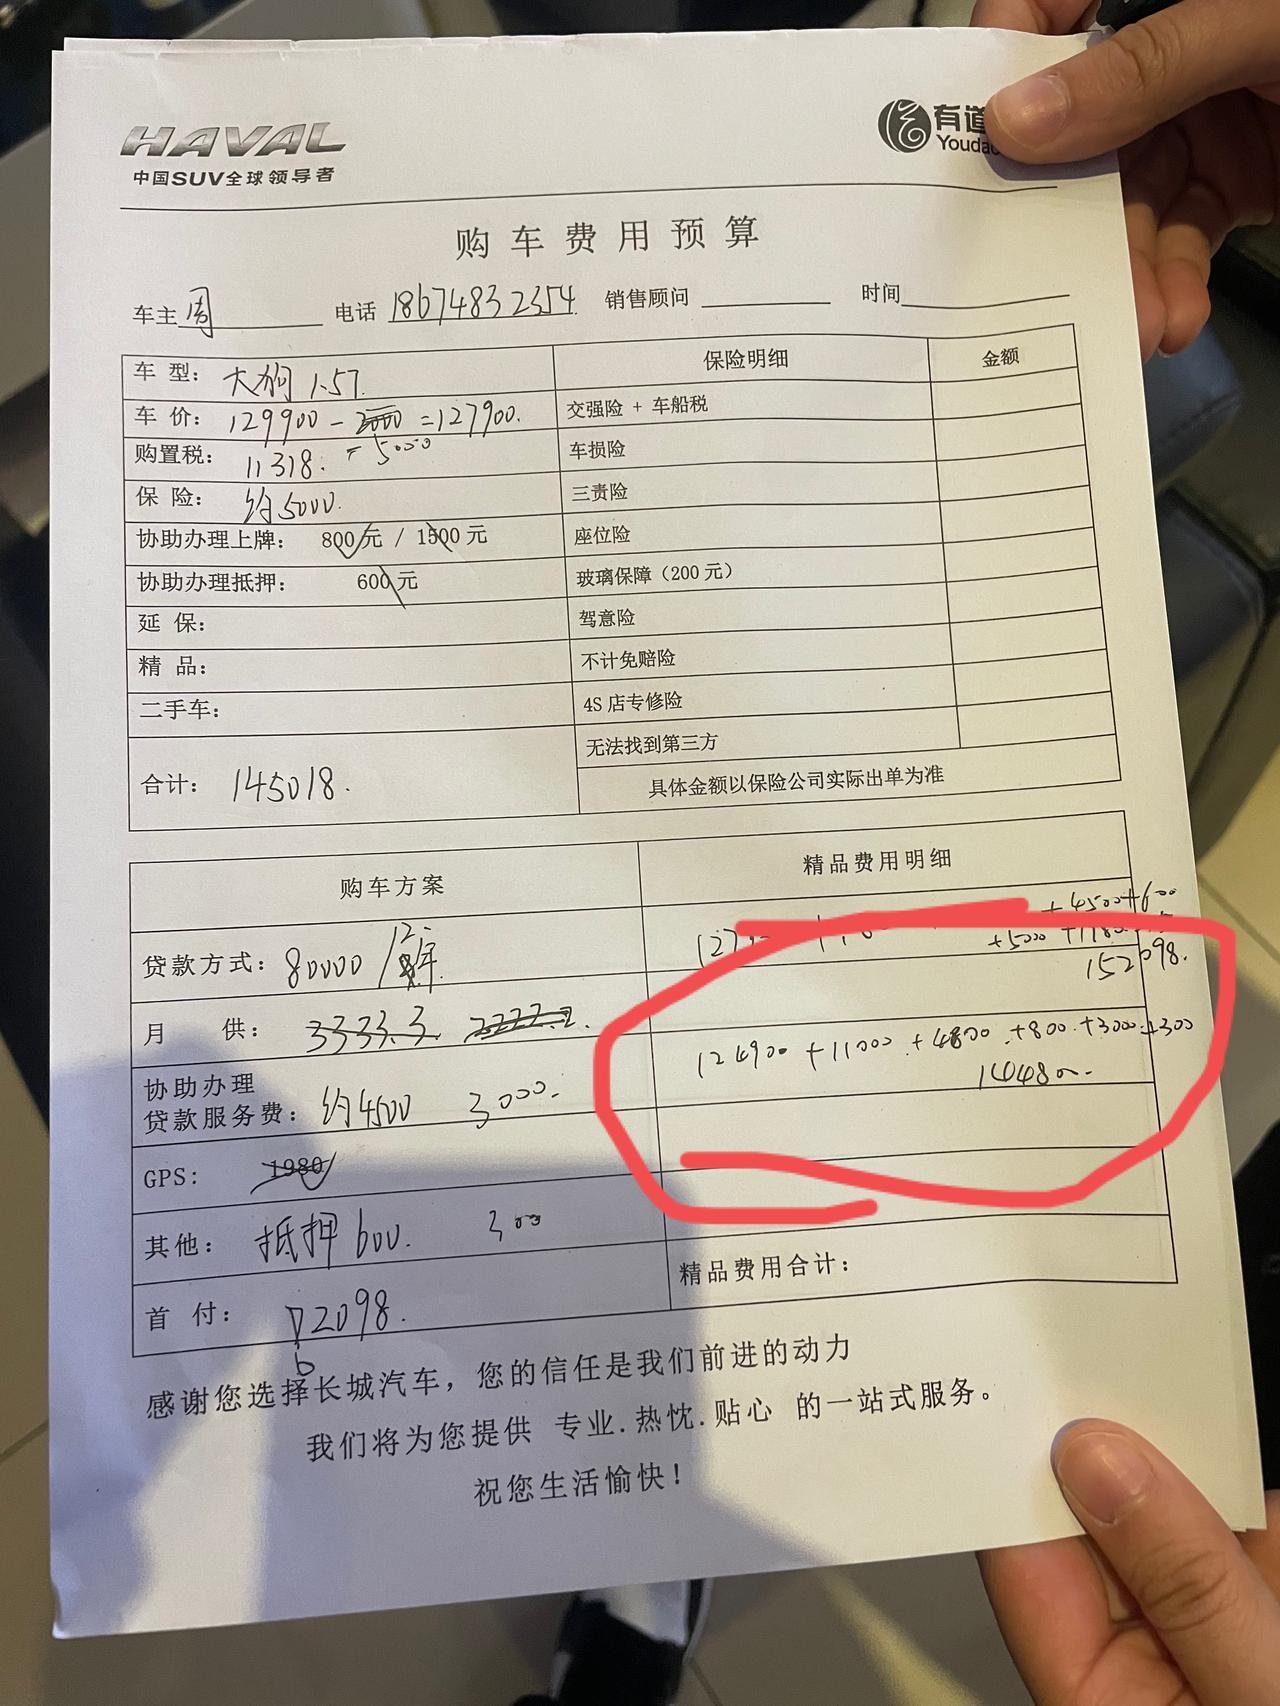 HAVAL
中国SUV全球领导者
有道
Youdao
购车费用预算
车主 周 电话 18674832354 销售顾问 时间
车 型： 大狗 1.5T 保险明细 金额
车 价： 129900 - 2000 = 127900. 交强险 + 车船税
- 5000
购置税： 11318. 车损险
保 险： 约5000. 三责险
协助办理上牌： 800元 / 1500元 座位险
协助办理抵押： 600元 玻璃保障（200元）
延 保： 驾意险
精 品： 不计免赔险
二手车： 4S店专修险
无法找到第三方
合计： 145018. 具体金额以保险公司实际出单为准
购车方案 精品费用明细
贷款方式： 80000 / 2年 +4500+600
+5000
152098.
月 供： 3333.3 2222.2.
124900 + 11000 + 4800 + 800 + 3000 + 300
144800.
协助办理
贷款服务费： 约4500 3000.
GPS： 1980
其他： 抵押600. 300
精品费用合计：
首 付： 72098.
6
感谢您选择长城汽车，您的信任是我们前进的动力
我们将为您提供 专业.热忱.贴心 的一站式服务。
祝您生活愉快！